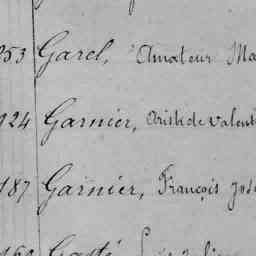 253 Garel, Amateur Ma
124 Garnier, Aristide Valent
187 Garnier, François Jos